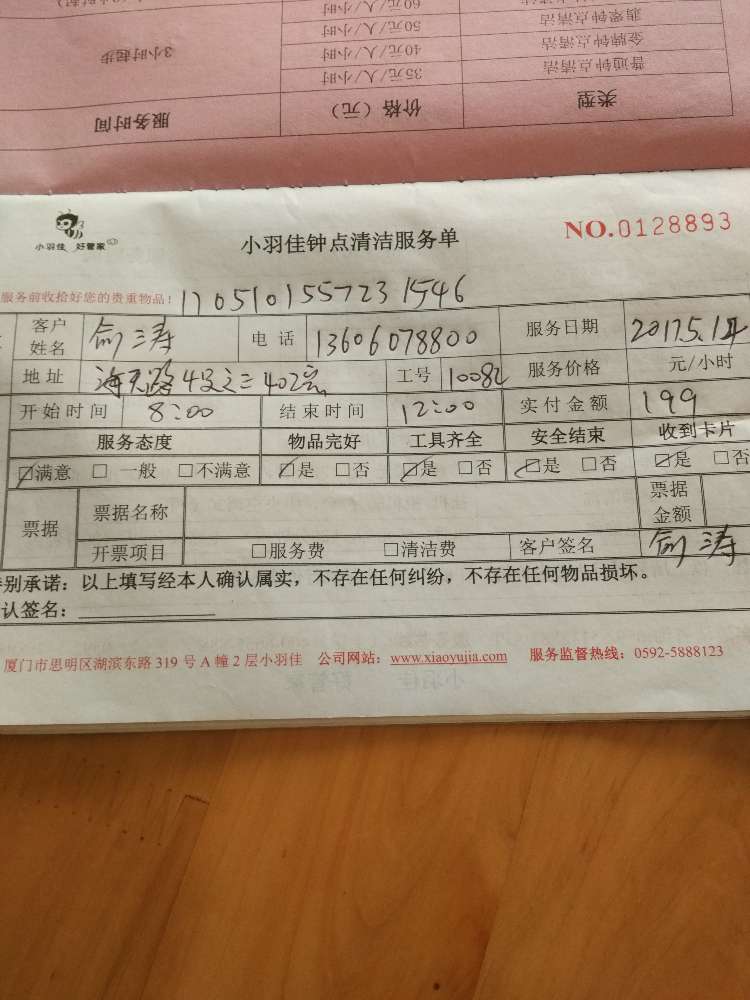 60元/人/小时
翡翠钟点清洁 50元/人/小时
金牌钟点清洁 40元/人/小时 3小时起步
普通钟点清洁 35元/人/小时
类型 价格（元） 服务时间
小羽佳 好管家
小羽佳钟点清洁服务单
NO.0128893
服务前收拾好您的贵重物品！ 170510155723 1546
客户姓名 涛 电话 13606078800 服务日期 2017.5.1
地址 海天路4 402 工号 10082 服务价格 元/小时
开始时间 8:00 结束时间 12:00 实付金额 199
服务态度 物品完好 工具齐全 安全结束 收到卡片
☑满意 □一般 □不满意 ☑是 □否 ☑是 □否 ☑是 □否 ☑是 □否
票据 票据名称 票据金额
开票项目 □服务费 □清洁费 客户签名 涛
别承诺：以上填写经本人确认属实，不存在任何纠纷，不存在任何物品损坏。
认签名：
厦门市思明区湖滨东路 319 号 A 幢 2 层小羽佳 公司网站：www.xiaoyujia.com 服务监督热线：0592-5888123